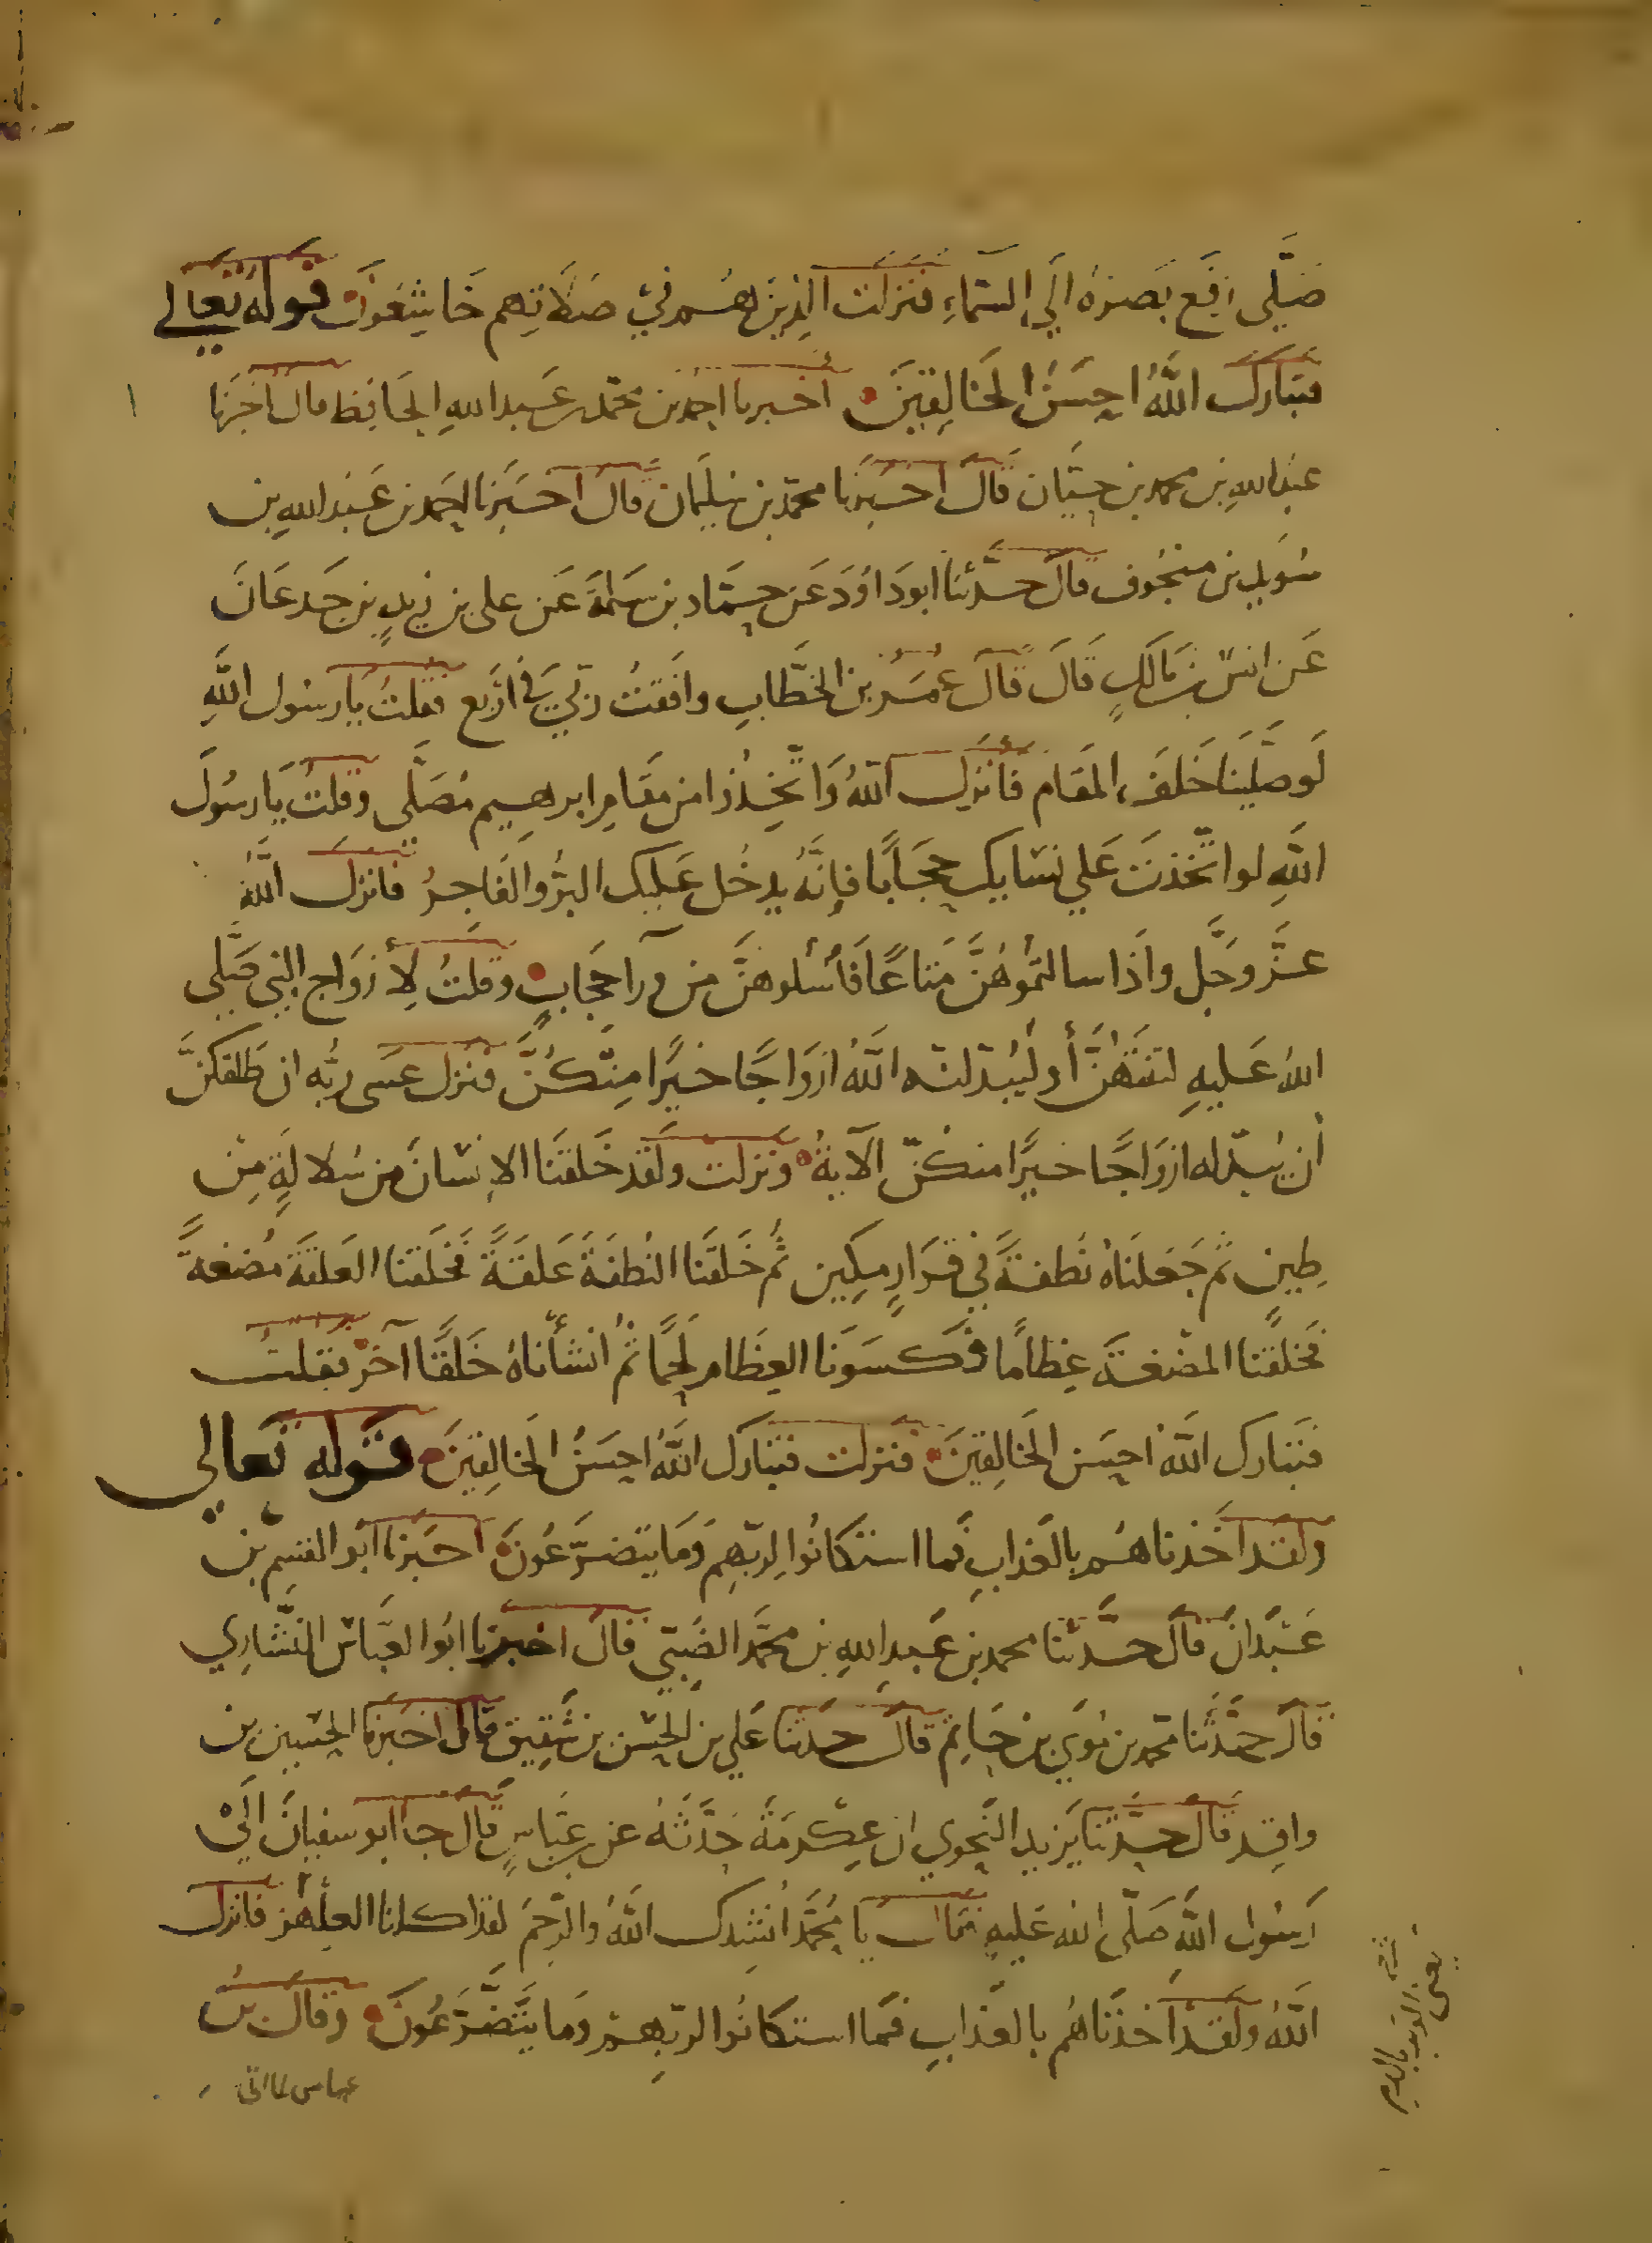 صَلَّى رفَع بَصَرَهُ الَي السَّمَاءِ فنَزلت الذِينَ هُم في صَلَاتِهِم خَاشِعُونَ قوله تعالى
فتبَارَكَ اللَّهُ احسَنُ الخَالِقِينَ أخبرنا احمد بن محمد بن عَبد اللهِ الحَافِظ قال اخبَرَنا
عبدُ اللهِ بن محمد بن حيَّان قالَ اخبَرَنا محمّد بن سُلَيمَان قالَ اخبَرَنا احمد بن عَبد اللهِ بن
سُوَيد بن منجُوف قالَ حدَّثنا ابو دَاوُدَ عَن حمّاد بن سَلمَةَ عَن علي بن زيدٍ بن جَدعَانَ
عَن انس بن مَالكٍ قَالَ قالَ عُمَرُ بن الخطَّابِ وافَقتُ ربّي في اربَع فقلتُ يا رسُول اللَّهِ
لَو صلَّينَا خَلفَ المقَام فأنزلَ اللهُ وَاتَّخِذُوا من مقَامِ ابرهيم مُصَلَّى وقلتُ يَا رسُولَ
اللَّهِ لو اتَّخذتَ عَلي نسَايِك حجَابًا فإنَّهُ يدخُل عَليك البرُّ والفَاجرُ فانزلَ اللَّهُ
عزَّ وجَلَّ واذَا سالتمُوهُنَّ مَتَاعًا فَاسْئلوهنَّ من ورآ حجَابٍ وقلتُ لأزوَاج النبي صَلَّى
اللهُ عَليهِ لتنتَهُنَّ أو ليُبدّلنّه اللَّهُ ازوَاجًا خيرًا مِنّكُنَّ فنزل عسَى ربُّه ان طَلقكنَّ
أن يُبدّله ازوَاجًا خيرًا منكُنّ الآيةُ ونزلت ولَقَد خَلَقنَا الإنسَانَ من سُلَالَةٍ مِنْ
طِينٍ ثُمَّ جَعَلنَاهُ نُطفةً في قرَارٍ مكِينٍ ثُم خَلَقنَا النُطفَةَ عَلَقَةً فَخَلَقنَا العَلقةَ مُضغةً
فَخَلَقنَا المضغَةَ عِظامًا فكسَونَا العِظَام لَحمًا ثُمَّ انشأنَاهُ خَلقًا آخر فقلت
فتَبَارك اللَّهُ احسَن الخَالِقينَ فنزلت فتبَارَك اللَّهُ احسَنُ الخَالِقِينَ قوله تعالى
ولَقد اخَذنَاهُم بالعَذابِ فما استكَانُوا لربّهِم وَمَا يتضرَّعُونَ اخبَرنا ابُو القسِم بن
عَبْدَانَ قَالَ حدَّثنا محمد بن عَبد اللهِ بن محَمَّد الضَبّي قالَ اخبرنا ابُو العَبَّاس السَّيَّارِي
قالَ حدَّثنا محمد بن مُوسَي بن حَاتِم قالَ حدثنا عَلي بن الحسَن بن شَقِيق قال اخبَرنا الحسَين بن
واقِد قالَ حدَّثنا يَزيد النَّحوي ان عِكرمَةَ حَدَّثَهُ عن بن عبَّاسٍ قال جا ابو سفيانَ الَيْ
رَسُول اللهِ صَلّى الله عَليهِ فقال يا مُحَمَّد انشُدك اللَّهَ والرّحمَ لقد اكلنا العِلْهز فانزلَ
اللَّهُ ولَقد اخَذنَاهُم بالعَذابِ فَمَا استكَانُوا لربّهم وَمَا يتَضَرَّعُونَ وقالَ بن
عباس لما اتى
يعني الوبر بالدم